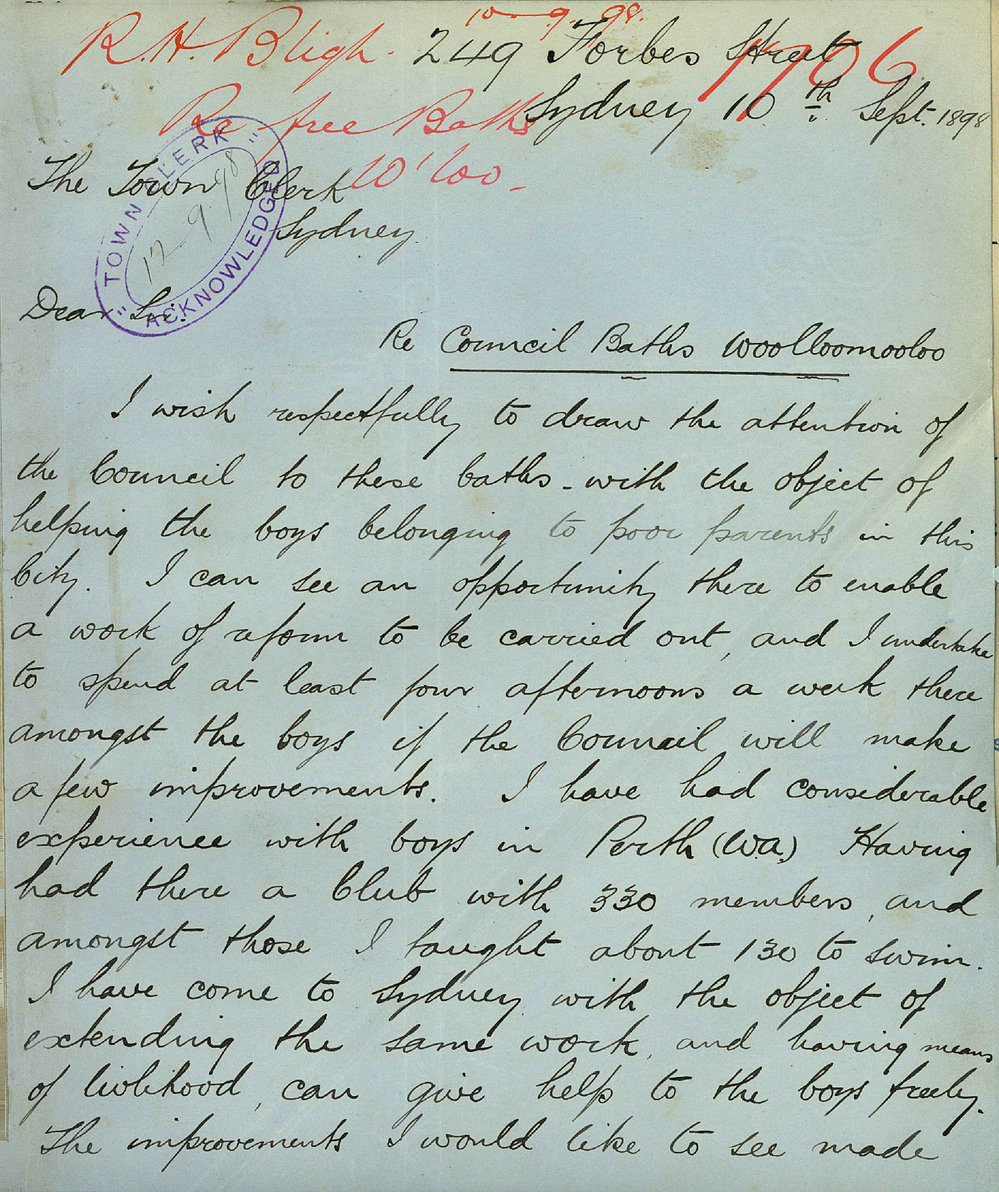 10-9.98.
R.H. Bligh. 249 Forbes Street
1706
Re free Baths Sydney 10th Sept 1898
W'loo.
TOWN CLERK
12-9.98
ACKNOWLEDGED
The Town Clerk
Sydney.
Dear Sir.
Re Council Baths Woolloomooloo
I wish respectfully to draw the attention of
the Council to these baths - with the object of
helping the boys belonging to poor parents in this
City. I can see an opportunity there to enable
a work of reform to be carried out, and I undertake
to spend at least four afternoons a week there
amongst the boys if the Council will make
a few improvements. I have had considerable
experience with boys in Perth (WA.) Having
had there a Club with 330 members, and
amongst those I taught about 130 to swim.
I have come to Sydney with the object of
extending the same work, and having means
of livlihood, can give help to the boys freely.
The improvements I would like to see made